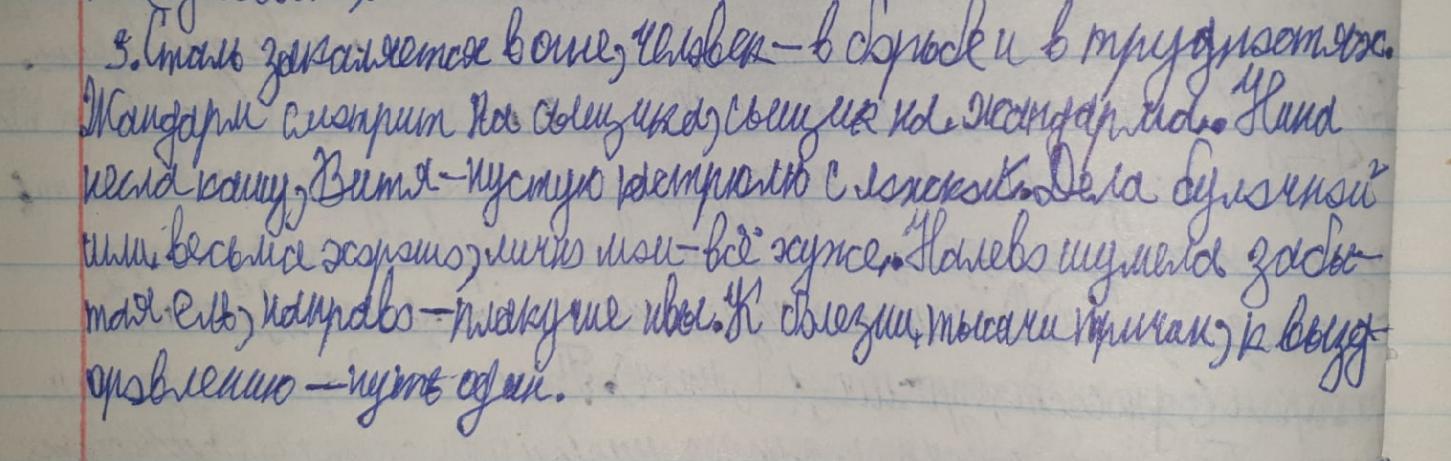 3. Сталь закаляется в огне, человек – в борьбе и в трудностях.
Жандарм смотрит на сыщика, сыщик на жандарма. Нина
несла кашу, Витя – пустую кастрюлю с ложкой. Дела булочной
шли весьма хорошо, лично мои – всё хуже. Налево шумела забы-
тая ель, направо – плакучие ивы. К болезни тысячи причин, к вызд-
оровлению – путь один.